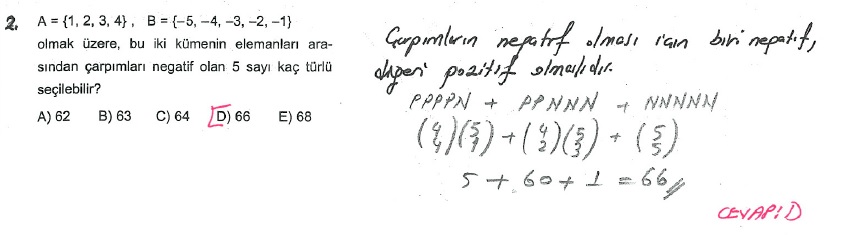 2. A = {1, 2, 3, 4} , B = {–5, –4, –3, –2, –1}
olmak üzere, bu iki kümenin elemanları ara-
sından çarpımları negatif olan 5 sayı kaç türlü
seçilebilir?
A) 62 B) 63 C) 64 D) 66 E) 68
Çarpımların negatif olması için biri negatif,
diğeri pozitif olmalıdır.
PPPPN + PPNNN + NNNNN
(4 4)(5 1) + (4 2)(5 3) + (5 5)
5 + 60 + 1 = 66//
CEVAP: D